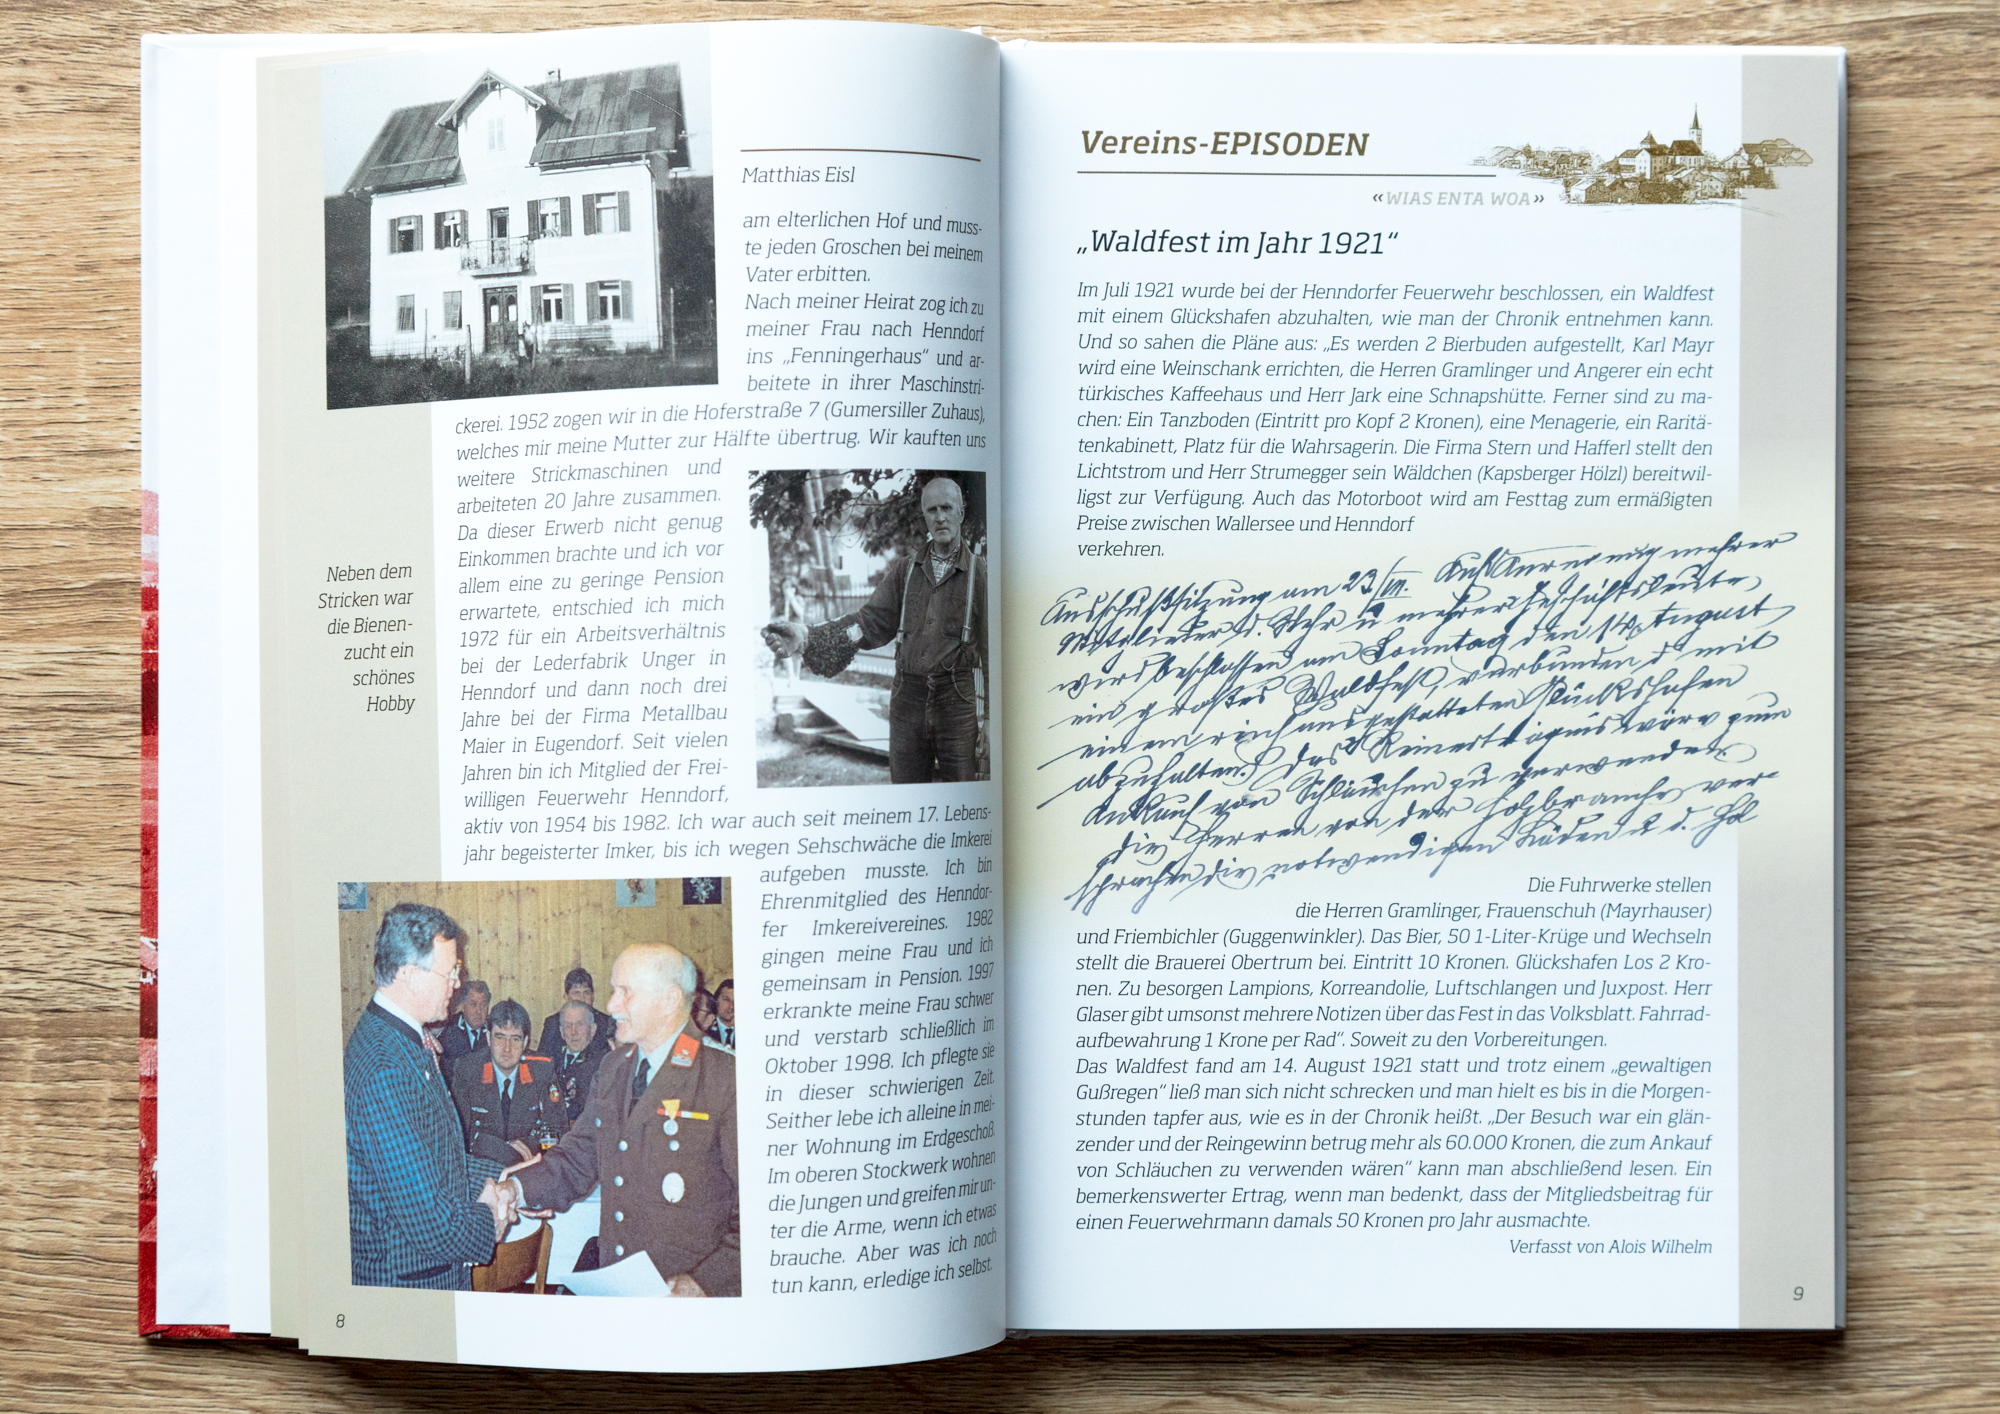 Matthias Eisl
am elterlichen Hof und muss-
te jeden Groschen bei meinem
Vater erbitten.
Nach meiner Heirat zog ich zu
meiner Frau nach Henndorf
ins „Fenningerhaus“ und ar-
beitete in ihrer Maschinstri-
ckerei. 1952 zogen wir in die Hoferstraße 7 (Gumersiller Zuhaus),
welches mir meine Mutter zur Hälfte übertrug. Wir kauften uns
weitere Strickmaschinen und
arbeiteten 20 Jahre zusammen.
Da dieser Erwerb nicht genug
Einkommen brachte und ich vor
allem eine zu geringe Pension
erwartete, entschied ich mich
1972 für ein Arbeitsverhältnis
bei der Lederfabrik Unger in
Henndorf und dann noch drei
Jahre bei der Firma Metallbau
Maier in Eugendorf. Seit vielen
Jahren bin ich Mitglied der Frei-
willigen Feuerwehr Henndorf,
aktiv von 1954 bis 1982. Ich war auch seit meinem 17. Lebens-
jahr begeisterter Imker, bis ich wegen Sehschwäche die Imkerei
aufgeben musste. Ich bin
Ehrenmitglied des Henndor-
fer Imkereivereines. 1982
gingen meine Frau und ich
gemeinsam in Pension. 1997
erkrankte meine Frau schwer
und verstarb schließlich im
Oktober 1998. Ich pflegte sie
in dieser schwierigen Zeit.
Seither lebe ich alleine in mei-
ner Wohnung im Erdgeschoß.
Im oberen Stockwerk wohnen
die Jungen und greifen mir un-
ter die Arme, wenn ich etwas
brauche. Aber was ich noch
tun kann, erledige ich selbst.
Neben dem
Stricken war
die Bienen-
zucht ein
schönes
Hobby
8
Vereins-EPISODEN
«WIAS ENTA WOA»
„Waldfest im Jahr 1921“
Im Juli 1921 wurde bei der Henndorfer Feuerwehr beschlossen, ein Waldfest
mit einem Glückshafen abzuhalten, wie man der Chronik entnehmen kann.
Und so sahen die Pläne aus: „Es werden 2 Bierbuden aufgestellt, Karl Mayr
wird eine Weinschank errichten, die Herren Gramlinger und Angerer ein echt
türkisches Kaffeehaus und Herr Jark eine Schnapshütte. Ferner sind zu ma-
chen: Ein Tanzboden (Eintritt pro Kopf 2 Kronen), eine Menagerie, ein Raritä-
tenkabinett, Platz für die Wahrsagerin. Die Firma Stern und Hafferl stellt den
Lichtstrom und Herr Strumegger sein Wäldchen (Kapsberger Hölzl) bereitwil-
ligst zur Verfügung. Auch das Motorboot wird am Festtag zum ermäßigten
Preise zwischen Wallersee und Henndorf
verkehren.
Ausschußsitzung am 23/VII. Auf Anregung mehrer
Mitglieder d. Wehr u mehrer Geschäftsleute,
wird beschlossen am Sonntag den 14. August
ein großes Waldfest, verbunden mit
einem reich ausgestatteten Glückshafen
abzuhalten. Das Reinerträgnis wäre zum
Ankauf von Schläuchen zu verwenden
die Herren von der Holzbranche ver-
sprachen die notwendigen Läden u. d. Hol
Die Fuhrwerke stellen
die Herren Gramlinger, Frauenschuh (Mayrhauser)
und Friembichler (Guggenwinkler). Das Bier, 50 1-Liter-Krüge und Wechseln
stellt die Brauerei Obertrum bei. Eintritt 10 Kronen. Glückshafen Los 2 Kro-
nen. Zu besorgen Lampions, Korreandolie, Luftschlangen und Juxpost. Herr
Glaser gibt umsonst mehrere Notizen über das Fest in das Volksblatt. Fahrrad-
aufbewahrung 1 Krone per Rad“. Soweit zu den Vorbereitungen.
Das Waldfest fand am 14. August 1921 statt und trotz einem „gewaltigen
Gußregen“ ließ man sich nicht schrecken und man hielt es bis in die Morgen-
stunden tapfer aus, wie es in der Chronik heißt. „Der Besuch war ein glän-
zender und der Reingewinn betrug mehr als 60.000 Kronen, die zum Ankauf
von Schläuchen zu verwenden wären“ kann man abschließend lesen. Ein
bemerkenswerter Ertrag, wenn man bedenkt, dass der Mitgliedsbeitrag für
einen Feuerwehrmann damals 50 Kronen pro Jahr ausmachte.
Verfasst von Alois Wilhelm
9